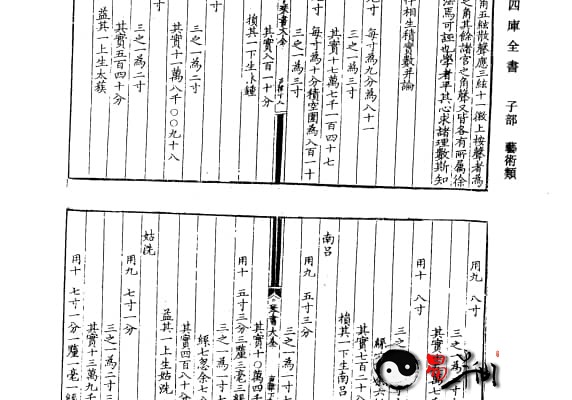 四庫全書 子部 藝術類
角五絃散聲應三絃十一徽上按聲者為
之角其餘諸宮之角聲又皆各有所屬徐
焉可誣也學者平其心求諸理數斯知
相生積實數并論
寸 每寸為九分為八十一
三之一為三寸
其實十七萬七千一百四十七
寸 每寸為十分積空圍為八百一十
三之一為三寸
琴書大全
其實八百一十分
損其一下生林鐘
寸
三之一為二寸
其實十一萬八千〇〇九十八
寸
三之一為二寸
其實五百四十分
益其一上生太蔟
用九 八寸
三之一為
其實
用十 八寸
三之一為
其實七百二十
損其一下生南呂
南呂
用九 五寸三分
三之一為一寸七
琴書大全
其實十〇萬四千
用十 五寸三分三釐三毫三絲
三之一為一寸七
絲七忽餘七
其實四百八十
益其一上生姑洗
姑洗
用九 七寸一分
三之一為二寸
其實十三萬九千
用十 七寸一分一釐一毫一絲